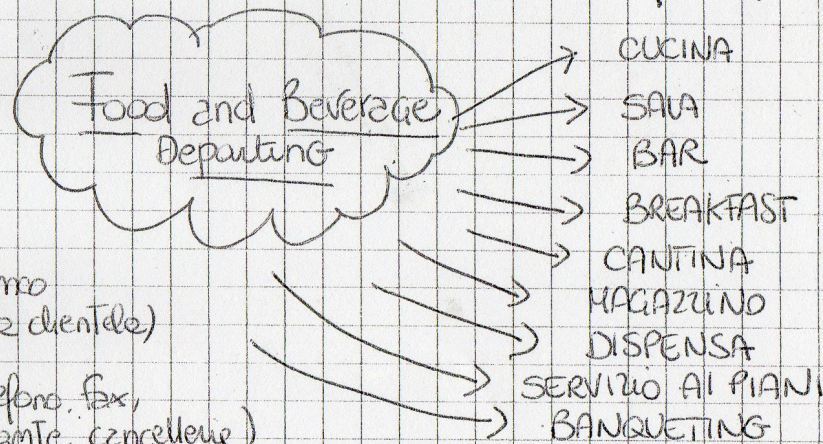 Food and Beverage
Departing
CUCINA
SALA
BAR
BREAKFAST
CANTINA
MAGAZZINO
DISPENSA
SERVIZIO AI PIANI
BANQUETING
clientela)
fax,
cancellerie)